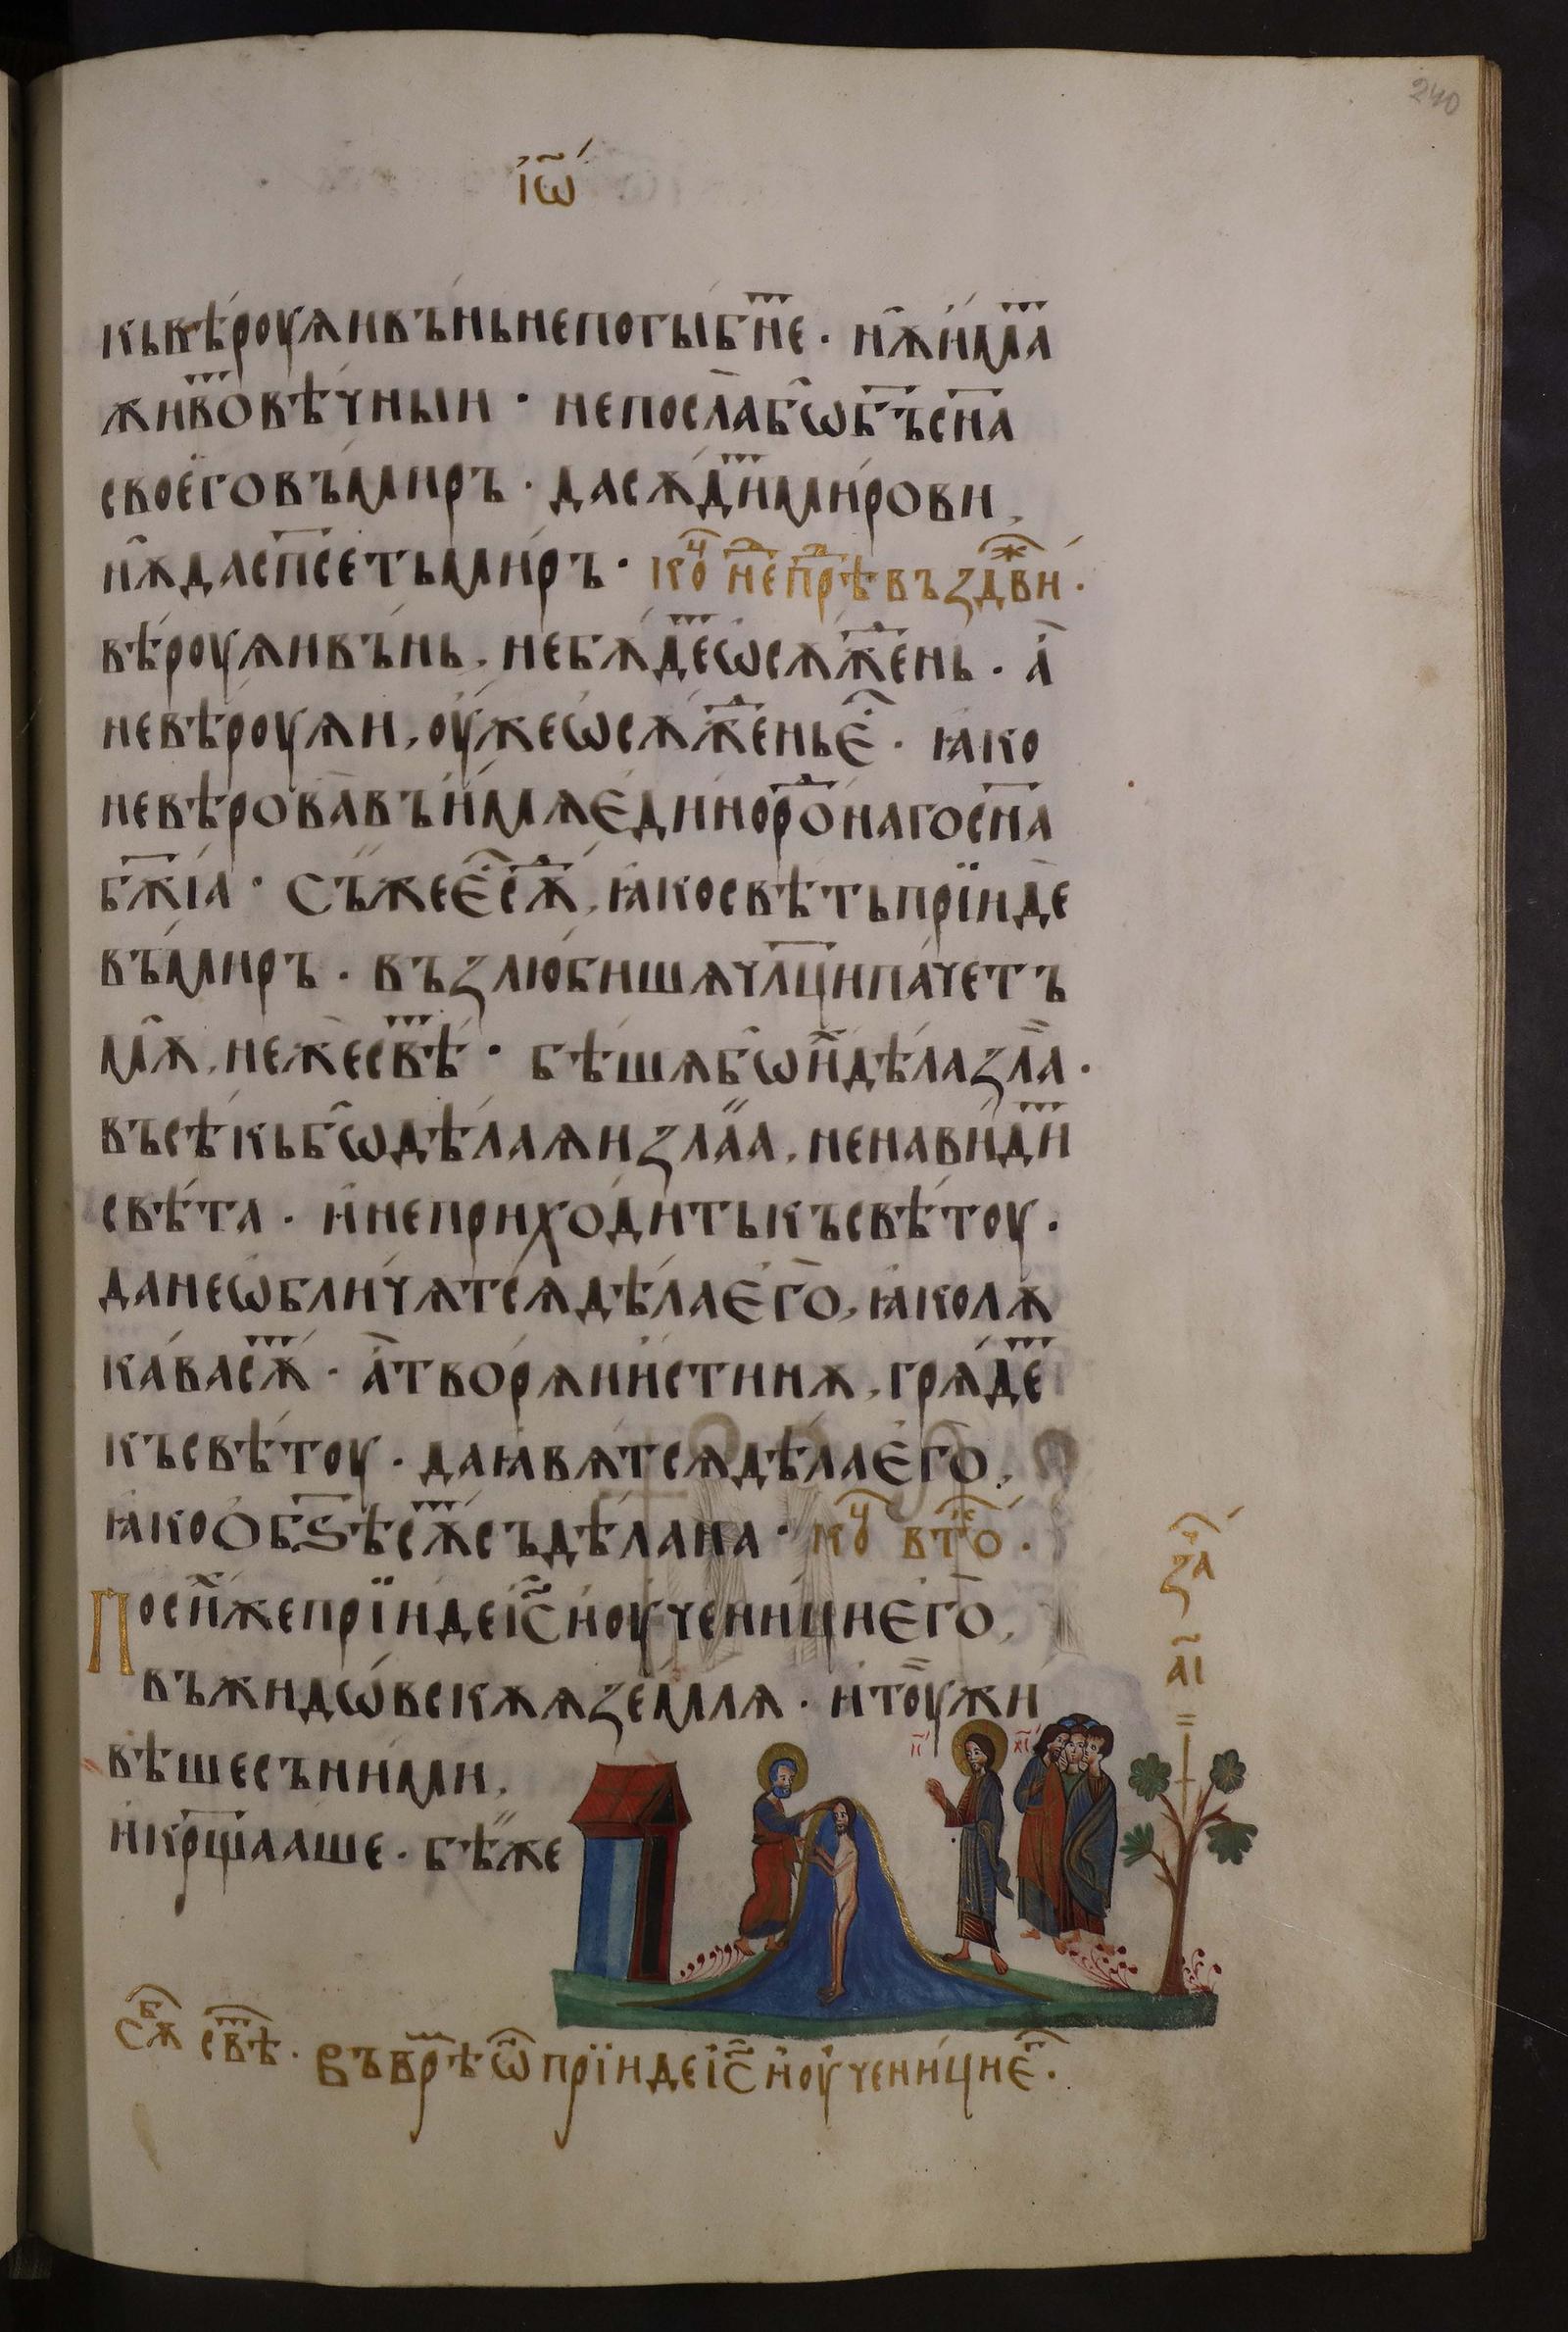 240
і҆ѡ҃
къвѣ́роуѧивъ́ньнепогы́бне · нѫ̑и҆́маⷨ
живоⷮвѣчныи · непосла̀бѡ̑б҃ъсн҃а
своего̀въми́ръ · дасѫ́диⷮми́рови,
нѫ̑даспⷭ҇етъми́ръ · коⷰ҇ неⷣ прⷣѣвъздвⷤи ·
вѣ́роуѧивъ́нь, небѫ́деⷮѡ҆сѫжⷣе́нь · а҆̀
невѣ́роуѧи, оу҆́жеѡ҆сѫжⷣе́ньѐⷭ · ꙗ҆́ко
невѣ́рова̀въи҆́мѧє҆дино́роⷣнагосн҃а
бж҃їа · Съ́жеє҆́ⷭсѫⷣ, ꙗ҆́космѣтьпрїи́де
въми́ръ · възлю́бишѧчл҃ци́па́четъ
мѫ̑, не́жесвⷮѣ · бѣ́шѧбѡ̑иⷯдѣ́лазла̀ ·
въсѣ́къбѡ̑дѣ́лаѧизла́а, ненави́диⷮ
свѣ́та · и҆неприхо́дитькъсвѣ́тоу ·
данеѡ҆бличѧ́тсѧдѣ́лає҆го̀, ꙗ҆́колѫ
ка́васѫⷮ · а҆̀творѧ́и҆́стинѫ, грѧде́ⷮ
късвѣ́тоу · даꙗ҆́вѧтсѧдѣ́лає҆го̀,
ꙗ҆́коѡ҆бѕ҃ѣсѫⷮсъдѣ́лана · коⷰ҇ втоⷬ ·
Посиⷯ́жепрїи́деі҆с҃и҆оу҆ченицие҆го̀,
въжидѡ́вскѫѧзе́млѧ · и҆тоу̀жи
вѣ́шесъни́ми,
и҆крщ҃ааше · бѣ́же
за̑ⷱ҇
а҃і
і҃с х҃с
сѫⷠ свⷮѣ · Въврⷨѣѡ҆́нопрїи́деі҆с҃и҆оу҆чени́циеⷢ҇ ·